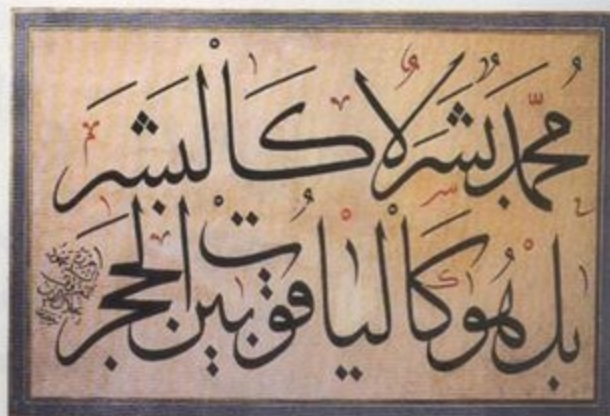 مُحَمَّدٌ بَشَرٌ لَا كَالْبَشَرِ
بَلْ هُوَ كَالْيَاقُوتِ بَيْنَ الْحَجَرِ